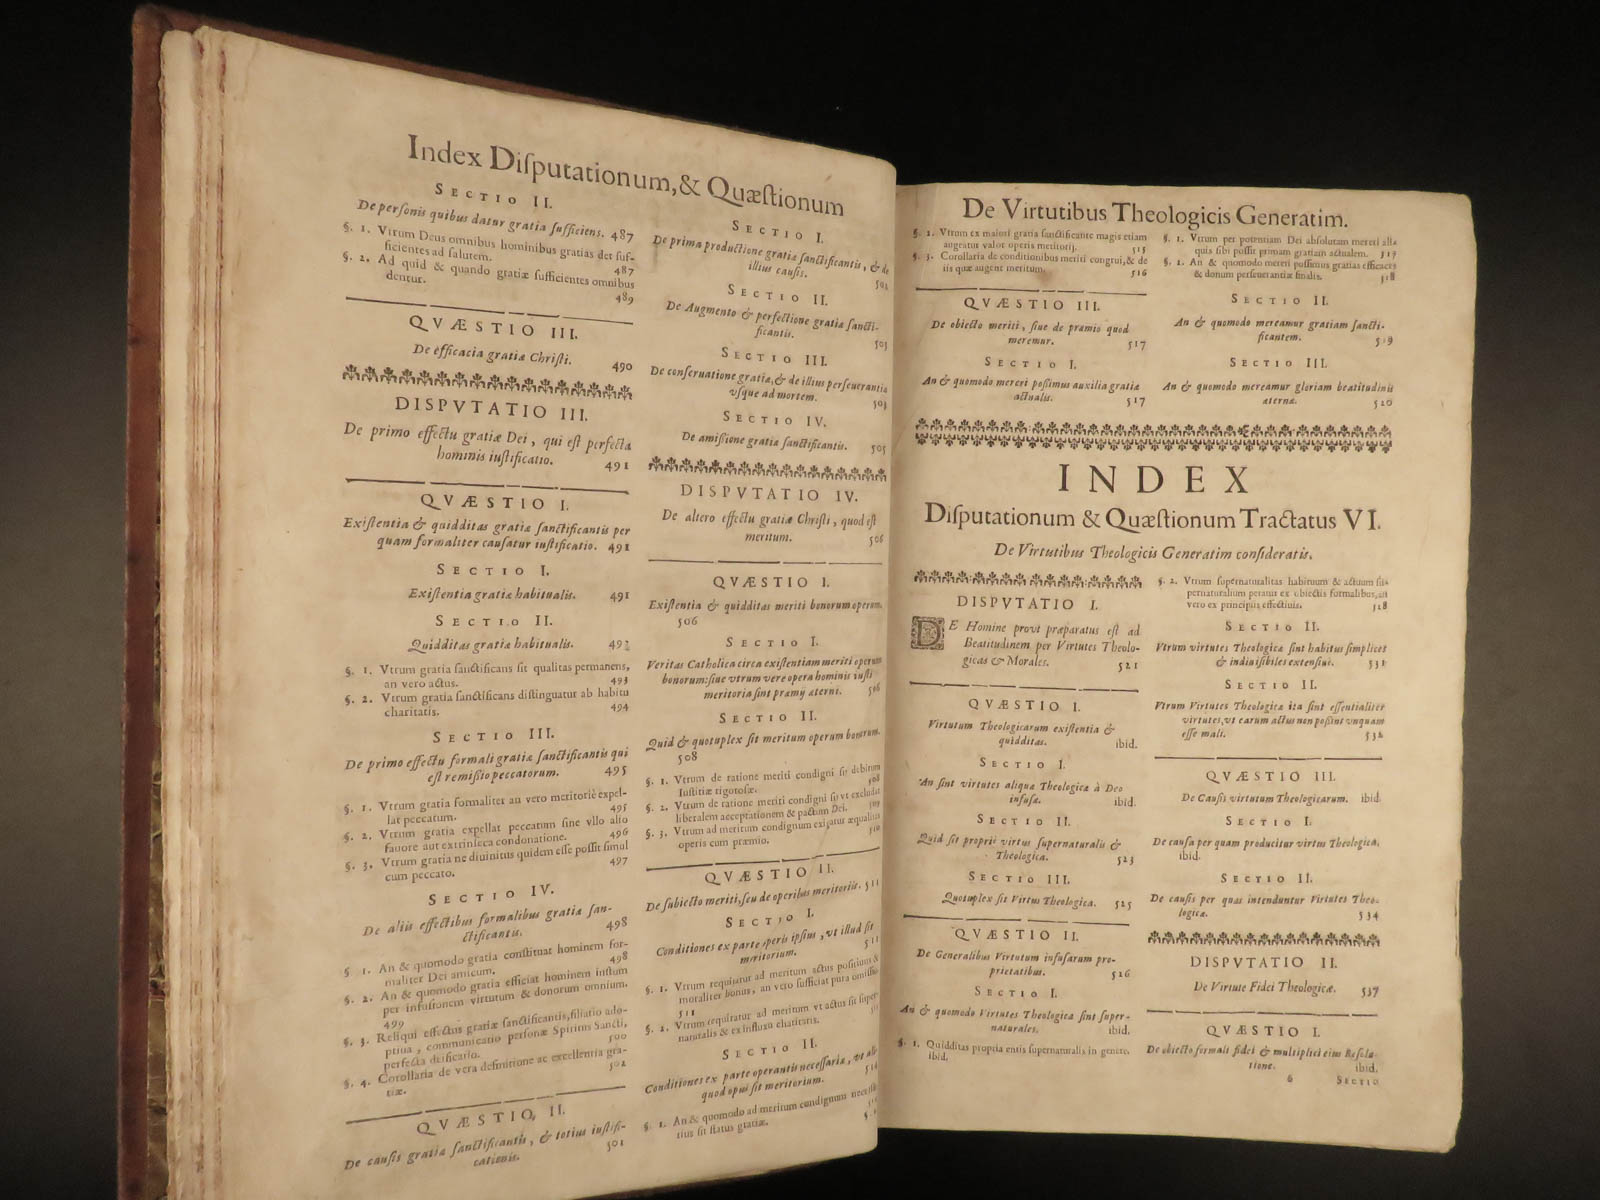 Index Diſputationum, & Quæſtionum
SECTIO II.
De perſonis quibus datur gratia ſufficiens. 487
§. 1. Vtrum Deus omnibus hominibus gratias det ſuf-
ficientes ad ſalutem. 487
§. 2. Ad quid & quando gratiæ ſufficientes omnibus
dentur. 489
QVÆSTIO III.
De efficacia gratiæ Chriſti. 490
DISPVTATIO III.
De primo effectu gratiæ Dei, qui eſt perfecta
hominis iuſtificatio. 491
QVÆSTIO I.
Exiſtentia & quidditas gratiæ ſanctificantis per
quam formaliter cauſatur iuſtificatio. 491
SECTIO I.
Exiſtentia gratiæ habitualis. 491
SECTIO II.
Quidditas gratiæ habitualis. 492
§. 1. Vtrum gratia ſanctificans ſit qualitas permanens,
an vero actus. 493
§. 2. Vtrum gratia ſanctificans diſtinguatur ab habitu
charitatis. 494
SECTIO III.
De primo effectu formali gratiæ ſanctificantis qui
eſt remiſſio peccatorum. 495
§. 1. Vtrum gratia formaliter an vero meritoriè expel-
lat peccatum. 495
§. 2. Vtrum gratia expellat peccatum ſine vllo alio
fauore aut extrinſeca condonatione. 496
§. 3. Vtrum gratia ne diuinitus quidem eſſe poſſit ſimul
cum peccato. 497
SECTIO IV.
De aliis effectibus formalibus gratiæ ſan-
ctificantis. 498
§ 1. An & quomodo gratia conſtituat hominem for-
maliter Dei amicum. 498
§. 2. An & quomodo gratia efficiat hominem iuſtum
per infuſionem virtutum & donorum omnium.
499
§. 3. Reliqui effectus gratiæ ſanctificantis, filiatio ado-
ptiua, communicatio perſonæ Spiritus Sancti,
perfecta deificatio. 500
§. 4. Corollaria de vera definitione ac excellentia gra-
tiæ. 502
QVÆSTIO, II.
De cauſis gratiæ ſanctificantis, & totius iuſtifi-
cationis. 501
SECTIO I.
De prima productione gratiæ ſanctificantis, & de
illius cauſis. 502
SECTIO II.
De Augmento & perfectione gratiæ ſancti-
ficantis. 503
SECTIO III.
De conſeruatione gratiæ, & de illius perſeuerantia
vſque ad mortem. 503
SECTIO IV.
De amiſſione gratiæ ſanctificantis. 505
DISPVTATIO IV.
De altero effectu gratiæ Chriſti, quod eſt
meritum. 506
QVÆSTIO I.
Exiſtentia & quidditas meriti bonorum operum.
506
SECTIO I.
Veritas Catholica circa exiſtentiam meriti operum
bonorum: ſiue vtrum vere opera hominis iuſti
meritoria ſint præmij æterni. 506
SECTIO II.
Quid & quotuplex ſit meritum operum bonorum.
508
§. 1. Vtrum de ratione meriti condigni ſit debitum
Iuſtitiæ rigoroſæ. 508
§. 2. Vtrum de ratione meriti condigni ſit vt excludat
liberalem acceptationem & pactum Dei. 509
§. 3. Vtrum ad meritum condignum exigatur æqualitas
operis cum præmio. 510
QVÆSTIO II.
De ſubiecto meriti, ſeu de operibus meritoriis. 511
SECTIO I.
Conditiones ex parte operis ipſius, vt illud ſit
meritorium. 511
§. 1. Vtrum requiratur ad meritum actus poſitiuus &
moraliter bonus, an vero ſufficiat pura omiſſio
511
§. 2. Vtrum requiratur ad meritum vt actus ſit ſuper-
naturalis & ex influxu charitatis.
SECTIO II.
Conditiones ex parte operantis neceſſariæ, vt ali-
quod opus ſit meritorium. 514
§. 1. An & quomodo ad meritum condignum neceſſa-
rius ſit ſtatus gratiæ.
De Virtutibus Theologicis Generatim.
§. 2. Vtrum ex maiori gratia ſanctificante magis etiam
augeatur valor operis meritorij. 515
§. 3. Corollaria de conditionibus meriti congrui, & de
iis quæ augent meritum. 516
QVÆSTIO III.
De obiecto meriti, ſiue de præmio quod
meremur. 517
SECTIO I.
An & quomodo mereri poſſimus auxilia gratiæ
actualis. 517
§. 1. Vtrum per potentiam Dei abſolutam mereri ali-
quis ſibi poſſit primam gratiam actualem. 517
§. 2. An & quomodo mereri poſſimus gratias efficaces
& donum perſeuerantiæ finalis. 518
SECTIO II.
An & quomodo mereamur gratiam ſancti-
ficantem. 519
SECTIO III.
An & quomodo mereamur gloriam beatitudinis
æternæ. 520
INDEX
Diſputationum & Quæſtionum Tractatus VI.
De Virtutibus Theologicis Generatim conſideratis.
DISPVTATIO I.
DE Homine prout præparatus eſt ad
Beatitudinem per Virtutes Theolo-
gicas & Morales. 521
QVÆSTIO I.
Virtutum Theologicarum exiſtentia &
quidditas. ibid.
SECTIO I.
An ſint virtutes aliquæ Theologicæ à Deo
infuſæ. ibid.
SECTIO II.
Quid ſit proprii virtus ſupernaturalis &
Theologica. 523
SECTIO III.
Quotuplex ſit Virtus Theologica. 525
QVÆSTIO II.
De Generalibus Virtutum infuſarum pro-
prietatibus. 526
SECTIO I.
An & quomodo Virtutes Theologicæ ſint ſuper-
naturales. ibid.
§. 1. Quidditas propria entis ſupernaturalis in genere.
ibid.
§. 2. Vtrum ſupernaturalitas habituum & actuum ſu-
pernaturalium petatur ex obiectis formalibus, an
vero ex principiis effectiuis. 528
SECTIO II.
Vtrum virtutes Theologicæ ſint habitus ſimplices
& indiuiſibiles extenſiui. 531
SECTIO II.
Vtrum Virtutes Theologicæ ita ſint eſſentialiter
virtutes, vt earum actus non poſſint vnquam
eſſe mali. 532
QVÆSTIO III.
De Cauſis virtutum Theologicarum. ibid.
SECTIO I.
De cauſa per quam producitur virtus Theologica.
ibid.
SECTIO II.
De cauſis per quas intenduntur Virtutes Theo-
logicæ. 534
DISPVTATIO II.
De Virtute Fidei Theologicæ. 537
QVÆSTIO I.
De obiecto formali fidei & multiplici eius Reſolu-
tione. ibid.
6 SECTIO